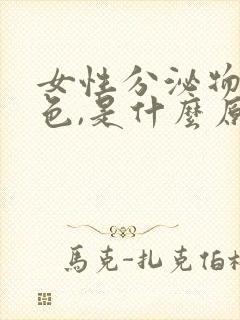 女性分泌物
色,是什麼原
馬克-扎克伯格